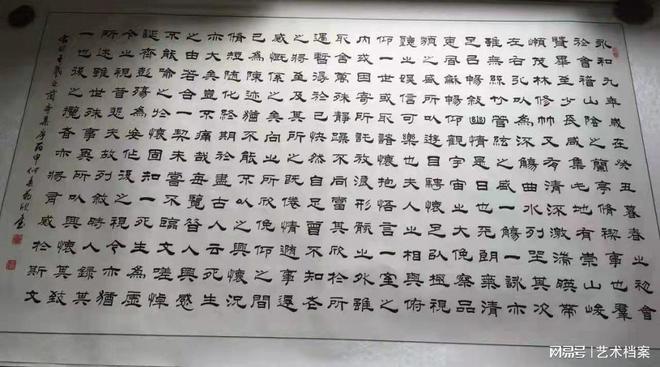 永和九年歲在癸丑暮春之初會
於會稽山陰之蘭亭脩禊事也羣
賢畢至少長咸集此地有崇山峻
嶺茂林脩竹又有清流激湍暎帶
左右引以為流觴曲水列坐其次
雖無絲竹管絃之盛一觴一詠亦
足以暢敘幽情是日也天朗氣清
惠風和暢仰觀宇宙之大俯察品
類之盛所以遊目騁懷足以極視
聽之娛信可樂也夫人之相與俯
仰一世或取諸懷抱悟言一室之
內或因寄所託放浪形骸之外雖
取舍萬殊靜躁不同當其欣於所
遇暫得於己快然自足曾不知老
之將至及其所之既倦情隨事遷
感慨係之矣向之所欣俛仰之間
已為陳迹猶不能不以之興懷況
脩短隨化終期於盡古人云死生
亦大矣豈不痛哉每覽昔人興感
之由若合一契未嘗不臨文嗟悼
不能喻之於懷固知一死生為虛
誕齊彭殤為妄作後之視今亦猶
今之視昔悲夫故列敘時人錄其
所述雖世殊事異所以興懷其致
一也後之覽者亦將有感於斯文
网易号 | 艺术档案